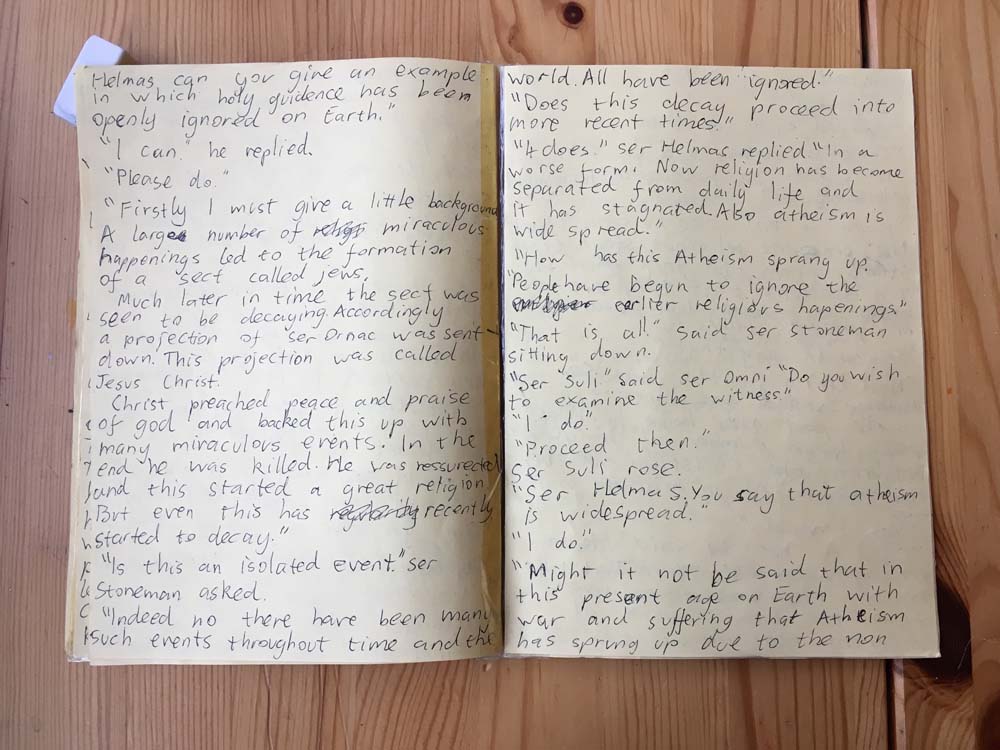 Helmas can you give an example
in which holy guidence has been
openly ignored on Earth."
"I can." he replied.
"Please do."
"Firstly I must give a little background
A large number of miraculous
happenings led to the formation
of a sect called jews.
Much later in time the sect was
seen to be decaying. Accordingly
a projection of ser Ornac was sent
down. This projection was called
Jesus Christ.
Christ preached peace and praise
of god and backed this up with
many miraculous events. In the
end he was killed. He was ressurected
and this started a great religion.
But even this has recently
started to decay."
"Is this an isolated event." ser
Stoneman asked.
"Indeed no there have been many
such events throughout time and the
world. All have been ignored."
"Does this decay proceed into
more recent times."
"It does." ser Helmas replied "In a
worse form. Now religion has become
separated from daily life and
it has stagnated. Also atheism is
wide spread."
"How has this Atheism sprang up.
"People have begun to ignore the
earlier religious hapenings."
"That is all" said ser stoneman
sitting down.
"Ser Suli" said ser Omni "Do you wish
to examine the witness."
"I do."
"Proceed then."
Ser Suli rose.
"Ser Helmas. You say that atheism
is widespread."
"I do."
"Might it not be said that in
this present age on Earth with
war and suffering that Atheism
has sprung up due to the non